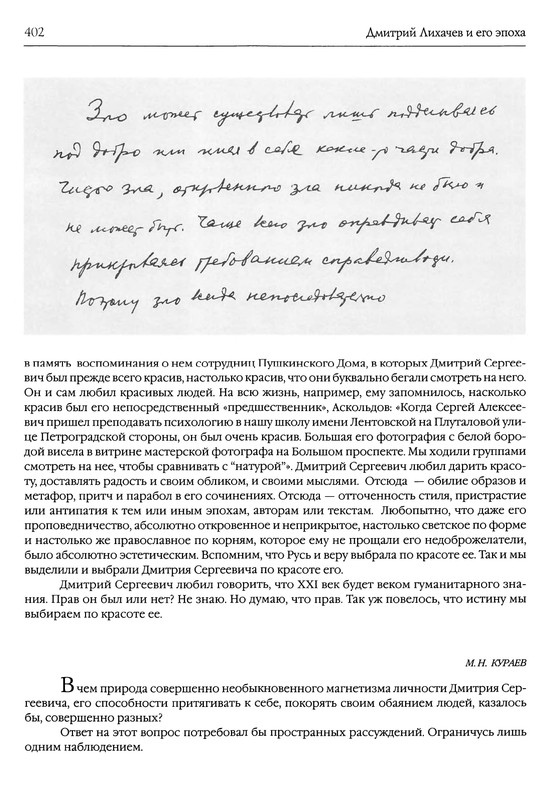 402
Дмитрий Лихачев и его эпоха
Зло может существовать лишь подделываясь
под добро или имея в себе какие-то части добра.
Чистого зла, откровенного зла никогда не было и
не может быть. Чаще всего зло оправдывает себя
прикрываясь требованием справедливости.
Потому зло всегда непоследовательно
в память воспоминания о нем сотрудниц Пушкинского Дома, в которых Дмитрий Сергее-
вич был прежде всего красив, настолько красив, что они буквально бегали смотреть на него.
Он и сам любил красивых людей. На всю жизнь, например, ему запомнилось, насколько
красив был его непосредственный «предшественник», Аскольдов: «Когда Сергей Алексее-
вич пришел преподавать психологию в нашу школу имени Лентовской на Плуталовой ули-
це Петроградской стороны, он был очень красив. Большая его фотография с белой боро-
дой висела в витрине мастерской фотографа на Большом проспекте. Мы ходили группами
смотреть на нее, чтобы сравнивать с “натурой”». Дмитрий Сергеевич любил дарить красо-
ту, доставлять радость и своим обликом, и своими мыслями. Отсюда — обилие образов и
метафор, притч и парабол в его сочинениях. Отсюда — отточенность стиля, пристрастие
или антипатия к тем или иным эпохам, авторам или текстам. Любопытно, что даже его
проповедничество, абсолютно откровенное и неприкрытое, настолько светское по форме
и настолько же православное по корням, которое ему не прощали его недоброжелатели,
было абсолютно эстетическим. Вспомним, что Русь и веру выбрала по красоте ее. Так и мы
выделили и выбрали Дмитрия Сергеевича по красоте его.
Дмитрий Сергеевич любил говорить, что XXI век будет веком гуманитарного зна-
ния. Прав он был или нет? Не знаю. Но думаю, что прав. Так уж повелось, что истину мы
выбираем по красоте ее.
М. Н. КУРАЕВ
В чем природа совершенно необыкновенного магнетизма личности Дмитрия Сер-
геевича, его способности притягивать к себе, покорять своим обаянием людей, казалось
бы, совершенно разных?
Ответ на этот вопрос потребовал бы пространных рассуждений. Ограничусь лишь
одним наблюдением.